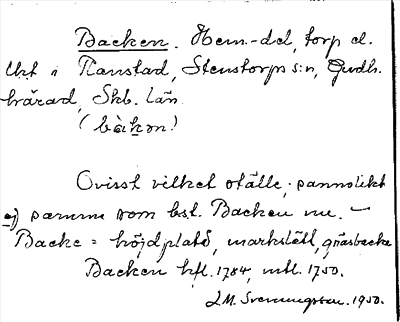 Backen. Hem.-del, torp el.
lht i Ranstad, Stenstorps s:n, Gudh.
härad, Skb. län
(bàkən)
Ovisst vilket ställe; sannolikt
ej samma som bst. Backen nu. –
Backe = höjdplatå, markslätt, gräsbacke
Backen hfl. 1784, mtl. 1750.
J.M. Svenungsson. 1950.